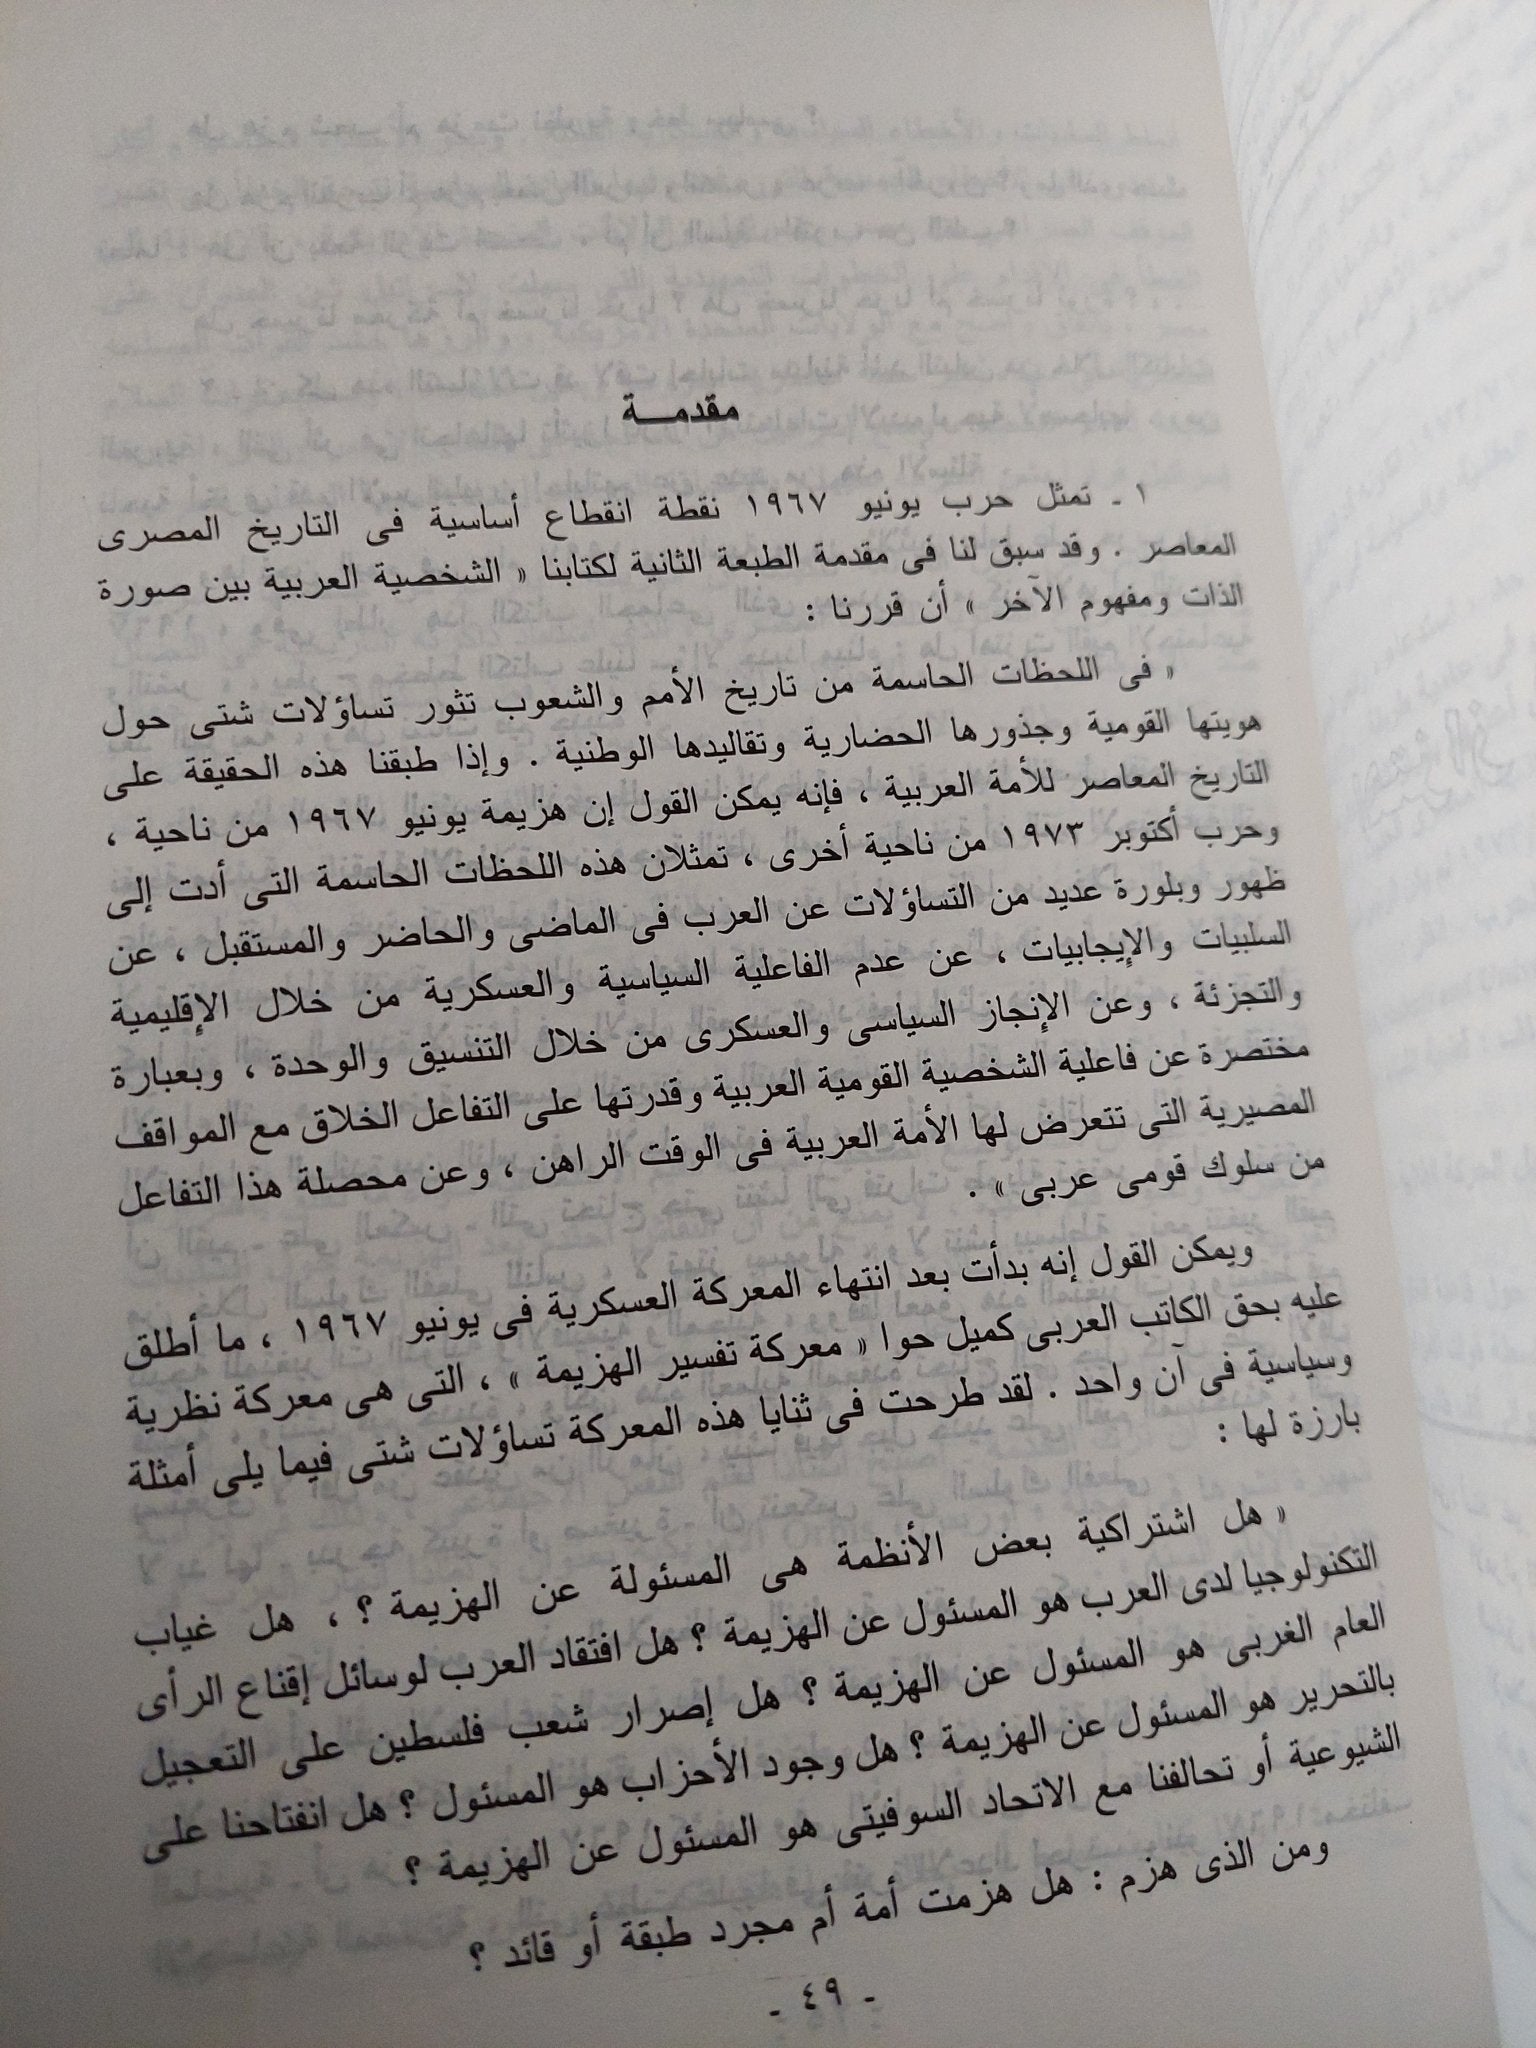 مقدمـــة
١ ـ تمثل حرب يونيو ١٩٦٧ نقطة انقطاع أساسية فى التاريخ المصرى
المعاصر . وقد سبق لنا فى مقدمة الطبعة الثانية لكتابنا « الشخصية العربية بين صورة
الذات ومفهوم الآخر » أن قررنا :
« فى اللحظات الحاسمة من تاريخ الأمم والشعوب تثور تساؤلات شتى حول
هويتها القومية وجذورها الحضارية وتقاليدها الوطنية . وإذا طبقنا هذه الحقيقة على
التاريخ المعاصر للأمة العربية ، فإنه يمكن القول إن هزيمة يونيو ١٩٦٧ من ناحية ،
وحرب أكتوبر ١٩٧٣ من ناحية أخرى ، تمثلان هذه اللحظات الحاسمة التى أدت إلى
ظهور وبلورة عديد من التساؤلات عن العرب فى الماضى والحاضر والمستقبل ، عن
السلبيات والإيجابيات ، عن عدم الفاعلية السياسية والعسكرية من خلال الإقليمية
والتجزئة ، وعن الإنجاز السياسى والعسكرى من خلال التنسيق والوحدة ، وبعبارة
مختصرة عن فاعلية الشخصية القومية العربية وقدرتها على التفاعل الخلاق مع المواقف
المصيرية التى تتعرض لها الأمة العربية فى الوقت الراهن ، وعن محصلة هذا التفاعل
من سلوك قومى عربى » .
ويمكن القول إنه بدأت بعد انتهاء المعركة العسكرية فى يونيو ١٩٦٧ ، ما أطلق
عليه بحق الكاتب العربى كميل حوا « معركة تفسير الهزيمة » ، التى هى معركة نظرية
وسياسية فى آن واحد . لقد طرحت فى ثنايا هذه المعركة تساؤلات شتى فيما يلى أمثلة
بارزة لها :
« هل اشتراكية بعض الأنظمة هى المسئولة عن الهزيمة ؟ ، هل غياب
التكنولوجيا لدى العرب هو المسئول عن الهزيمة ؟ هل افتقاد العرب لوسائل إقناع الرأى
العام الغربى هو المسئول عن الهزيمة ؟ هل إصرار شعب فلسطين على التعجيل
بالتحرير هو المسئول عن الهزيمة ؟ هل وجود الأحزاب هو المسئول ؟ هل انفتاحنا على
الشيوعية أو تحالفنا مع الاتحاد السوفيتى هو المسئول عن الهزيمة ؟
ومن الذى هزم : هل هزمت أمة أم مجرد طبقة أو قائد ؟
ـ ٤٩ ـ